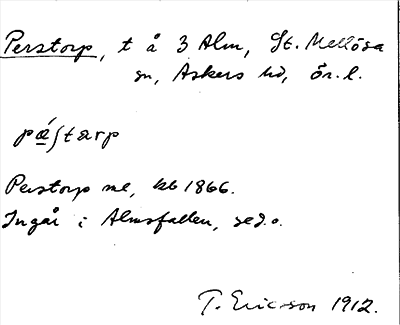 Perstorp, t å 3 Alm, St. Mellösa
sn, Askers hd, Ör. l.
pá̱ʃtarp
Perstorp me, kb 1866.
Ingår i Almsfallen, sed.o.
T. Ericsson 1912.